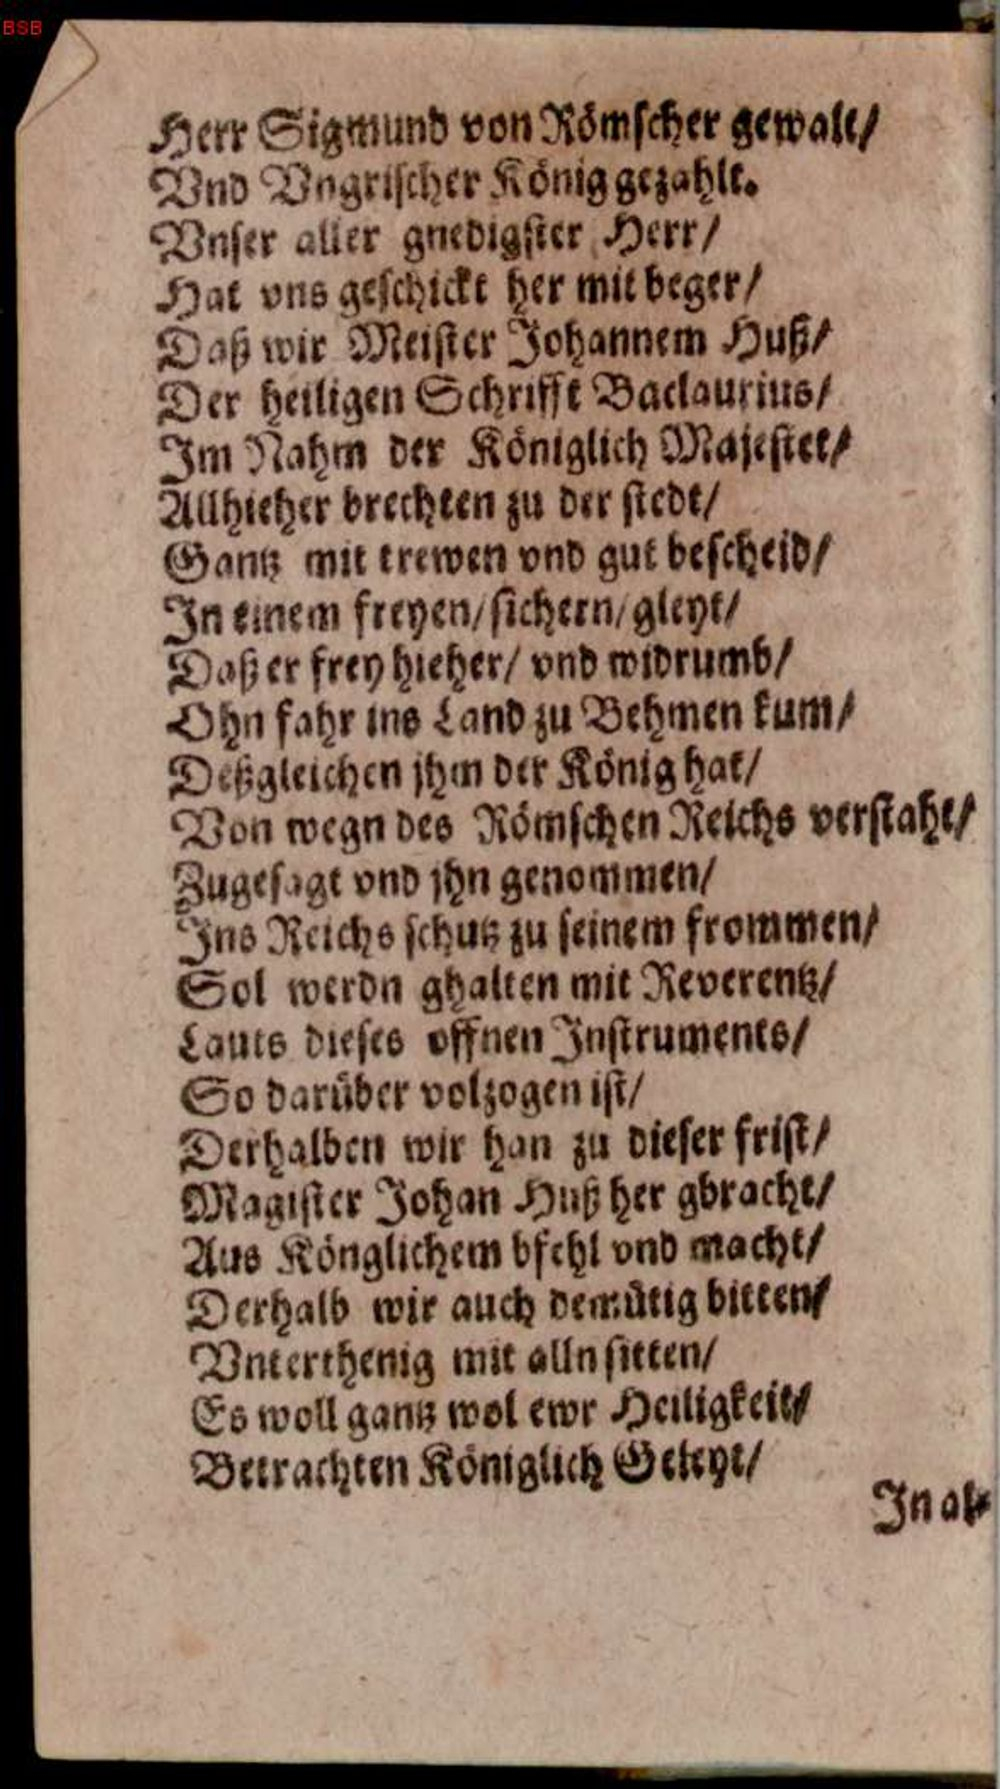 BSB
Herr Sigmund von Römscher gewalt/
Vnd Vngrischer König gezahlt.
Vnser aller gnedigster Herr/
Hat vns geschickt her mit beger/
Daß wir Meister Johannem Huß/
Der heiligen Schrifft Baclaurius/
Im Nahm der Königlich Majestet/
Allhieher brechten zu der stedt/
Gantz mit trewen vnd gut bescheid/
In einem freyen/sichern/gleyt/
Daß er frey hieher/ vnd widrumb/
Ohn fahr ins Land zu Behmen kum/
Deßgleichen jhm der König hat/
Von wegn des Römschen Reichs verstaht/
Zugesagt vnd jhn genommen/
Ins Reichs schutz zu seinem frommen/
Sol werdn ghalten mit Reverentz/
Lauts dieses offnen Instruments/
So darüber volzogen ist/
Derhalben wir han zu dieser frist/
Magister Johan Huß her gbracht/
Aus Könglichem bfehl vnd macht/
Derhalb wir auch demütig bitten/
Vnterthenig mit alln sitten/
Es woll gantz wol ewr Heiligkeit/
Betrachten Königlich Geleyt/
In al-